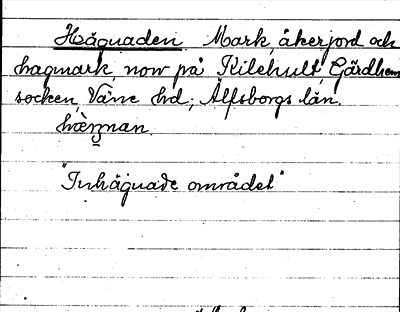 Hägnaden. Mark, åkerjord och
hagmark, now på Kilehult, Gärdhem
socken, Väne hd; Älfsborgs län.
"Inhägnade området"